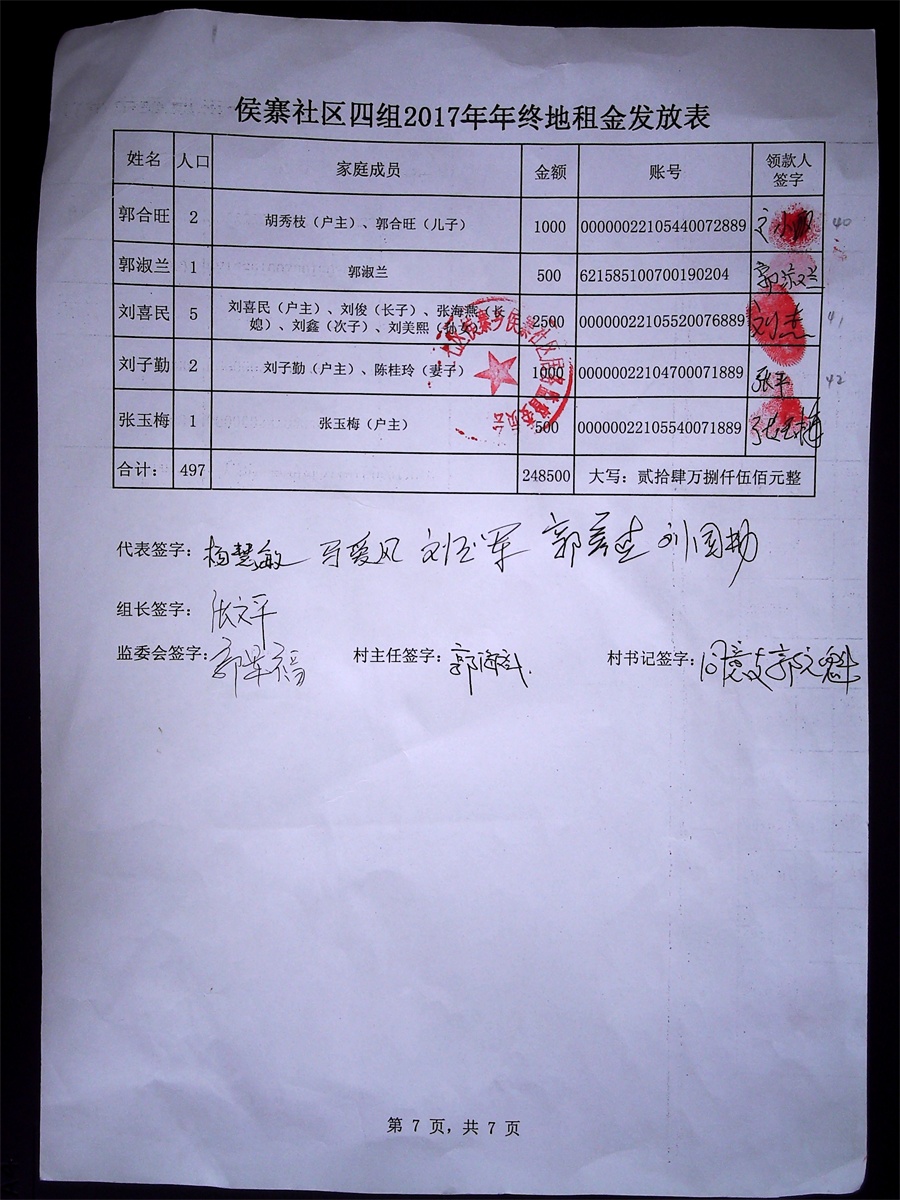 侯寨社区四组2017年年终地租金发放表
姓名 人口 家庭成员 金额 账号 领款人签字
郭合旺 2 胡秀枝（户主）、郭合旺（儿子） 1000 00000022105440072889 40
郭淑兰 1 郭淑兰 500 621585100700190204 郭淑兰
刘喜民 5 刘喜民（户主）、刘俊（长子）、张海燕（长
媳）、刘鑫（次子）、刘美熙（孙女） 2500 00000022105520076889 41
刘子勤 2 刘子勤（户主）、陈桂玲（妻子） 1000 00000022104700071889 张平 42
张玉梅 1 张玉梅（户主） 500 00000022105540071889 张玉梅
合计： 497 248500 大写：贰拾肆万捌仟伍佰元整
代表签字：杨慧敏 马爱风 刘玉军 刘国勋
组长签字：张文平
监委会签字： 村主任签字： 村书记签字：同意支郭元魁
第 7 页，共 7 页